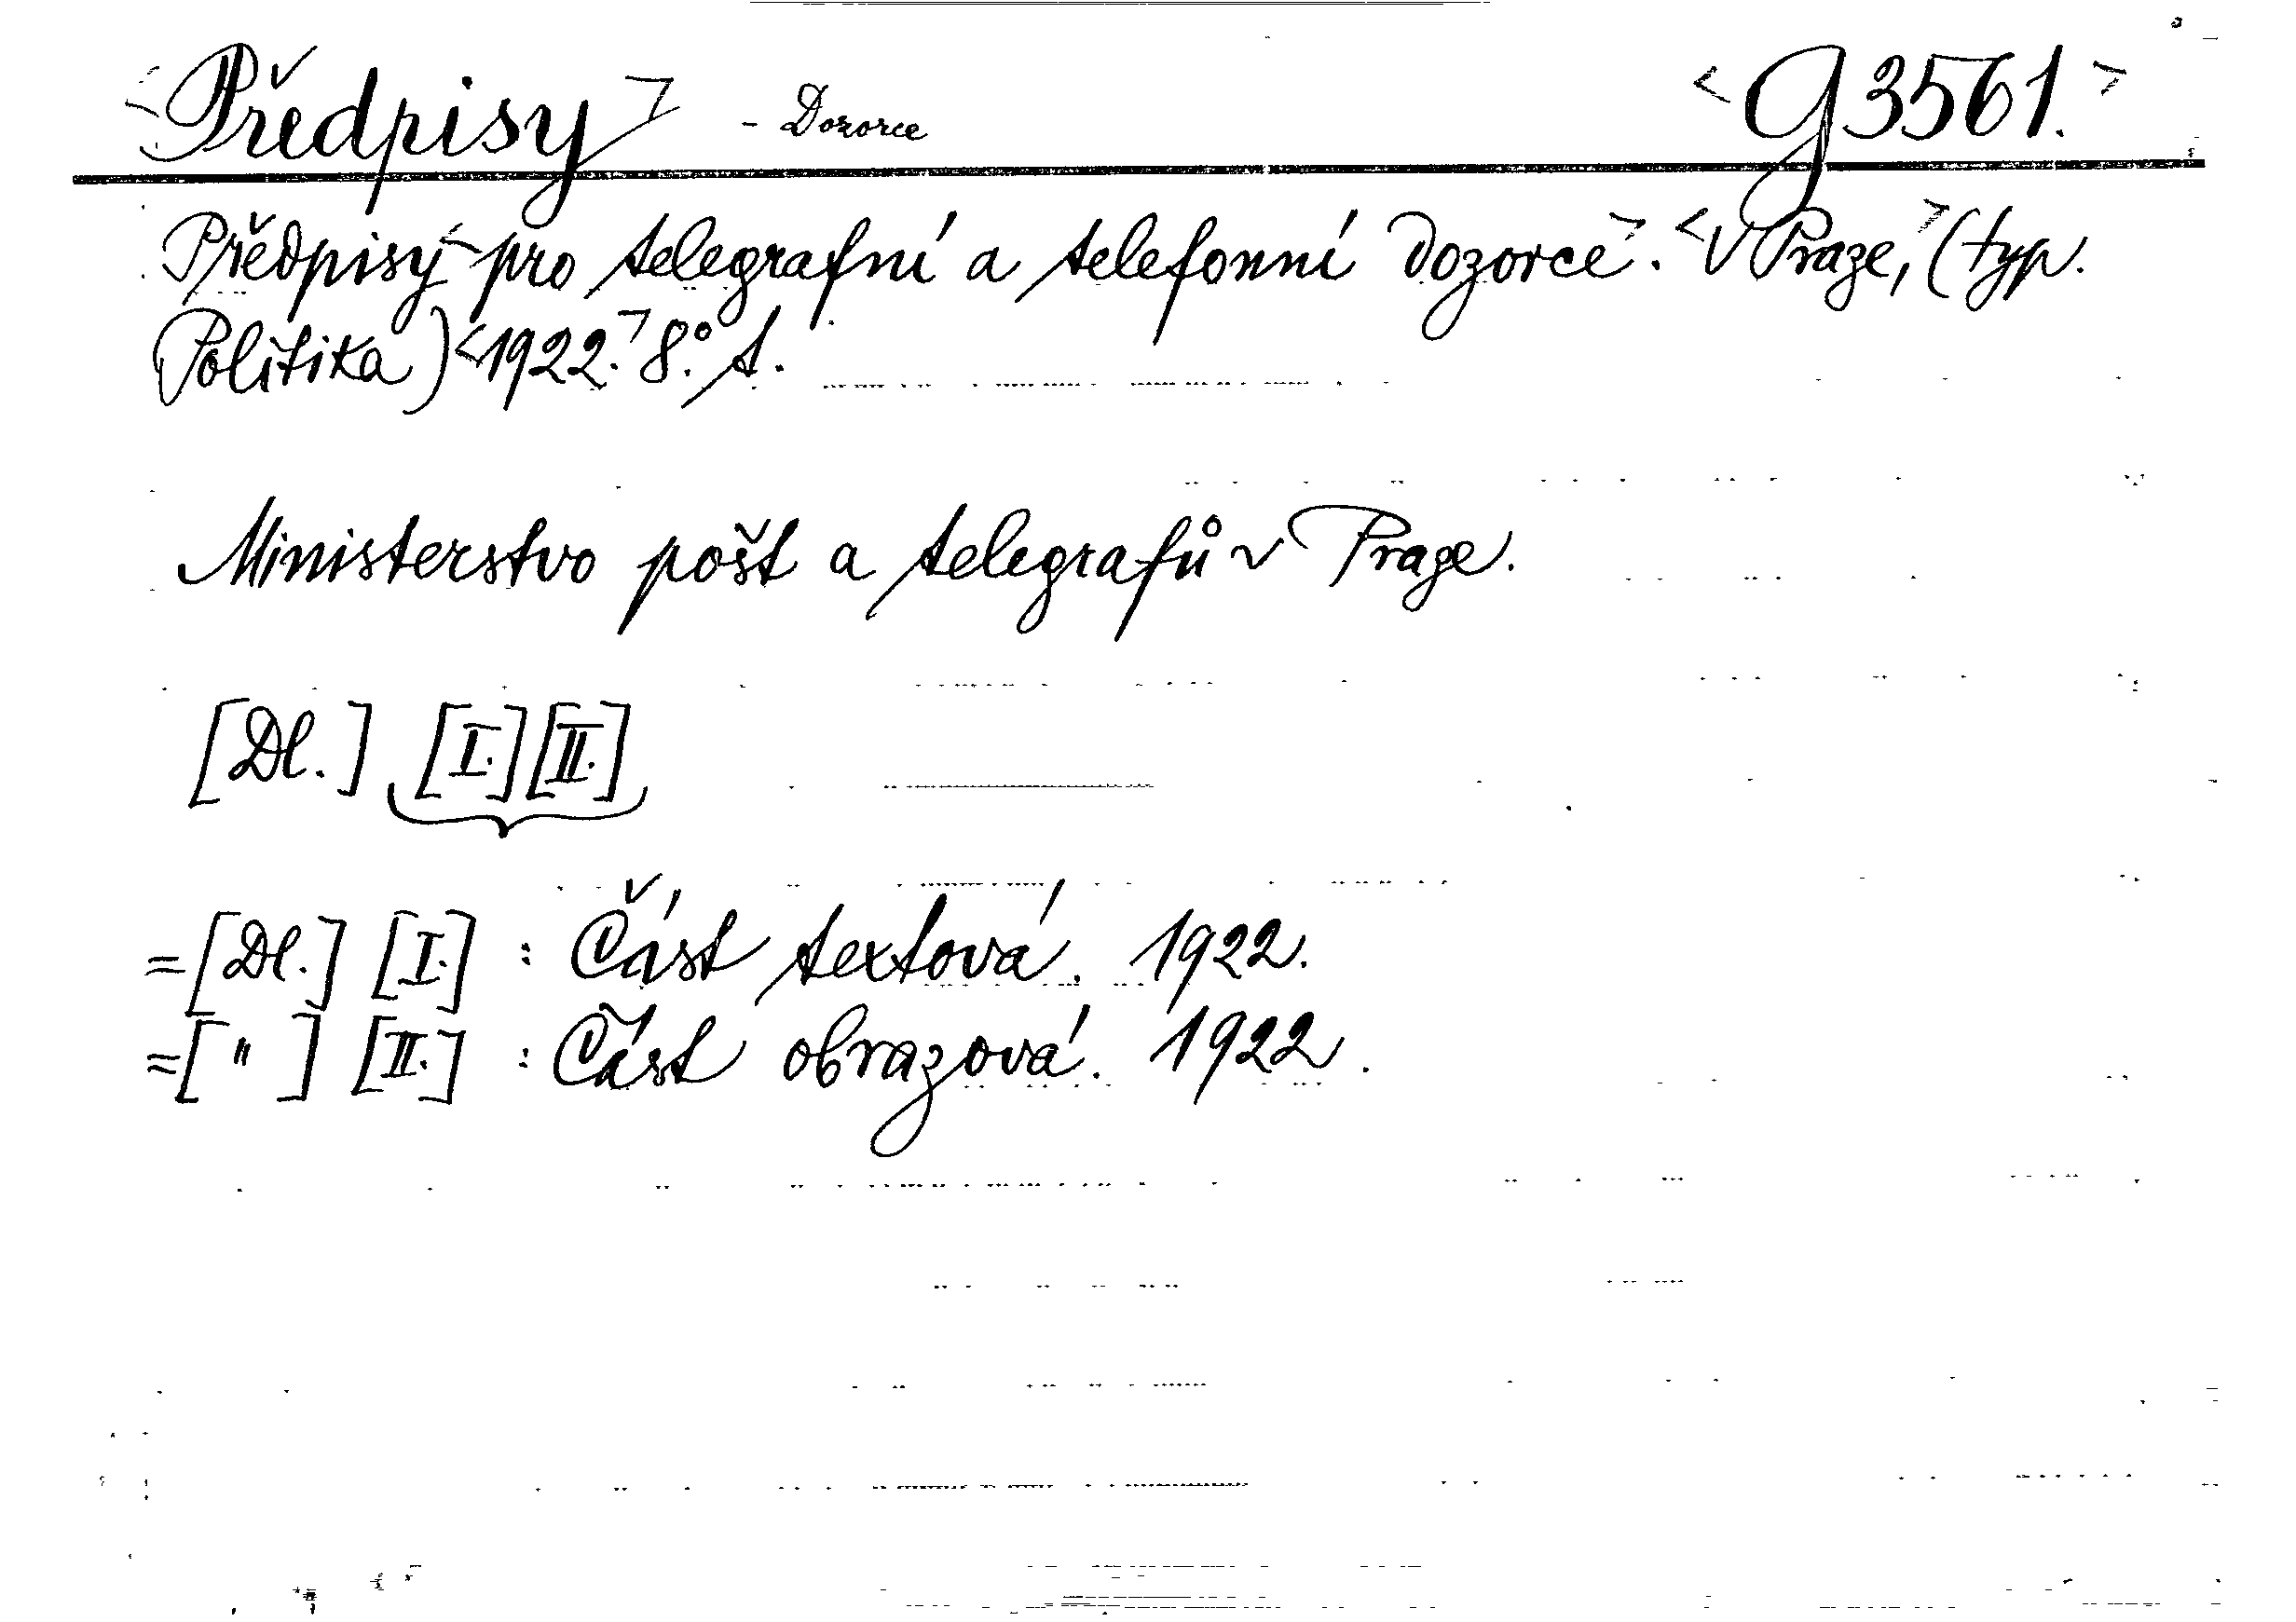 <Předpisy> - Dozorce <G 3561.>
Předpisy <pro telegrafní a telefonní dozorce>. <V Praze,> (typ.
Politika) <1922.> 8.° t.
Ministerstvo pošt a telegrafů v Praze.
[Dl.] [I.] [II.]
=[Dl.] [I.] : Část textová. 1922.
=[ " ] [II.] : Část obrazová. 1922.